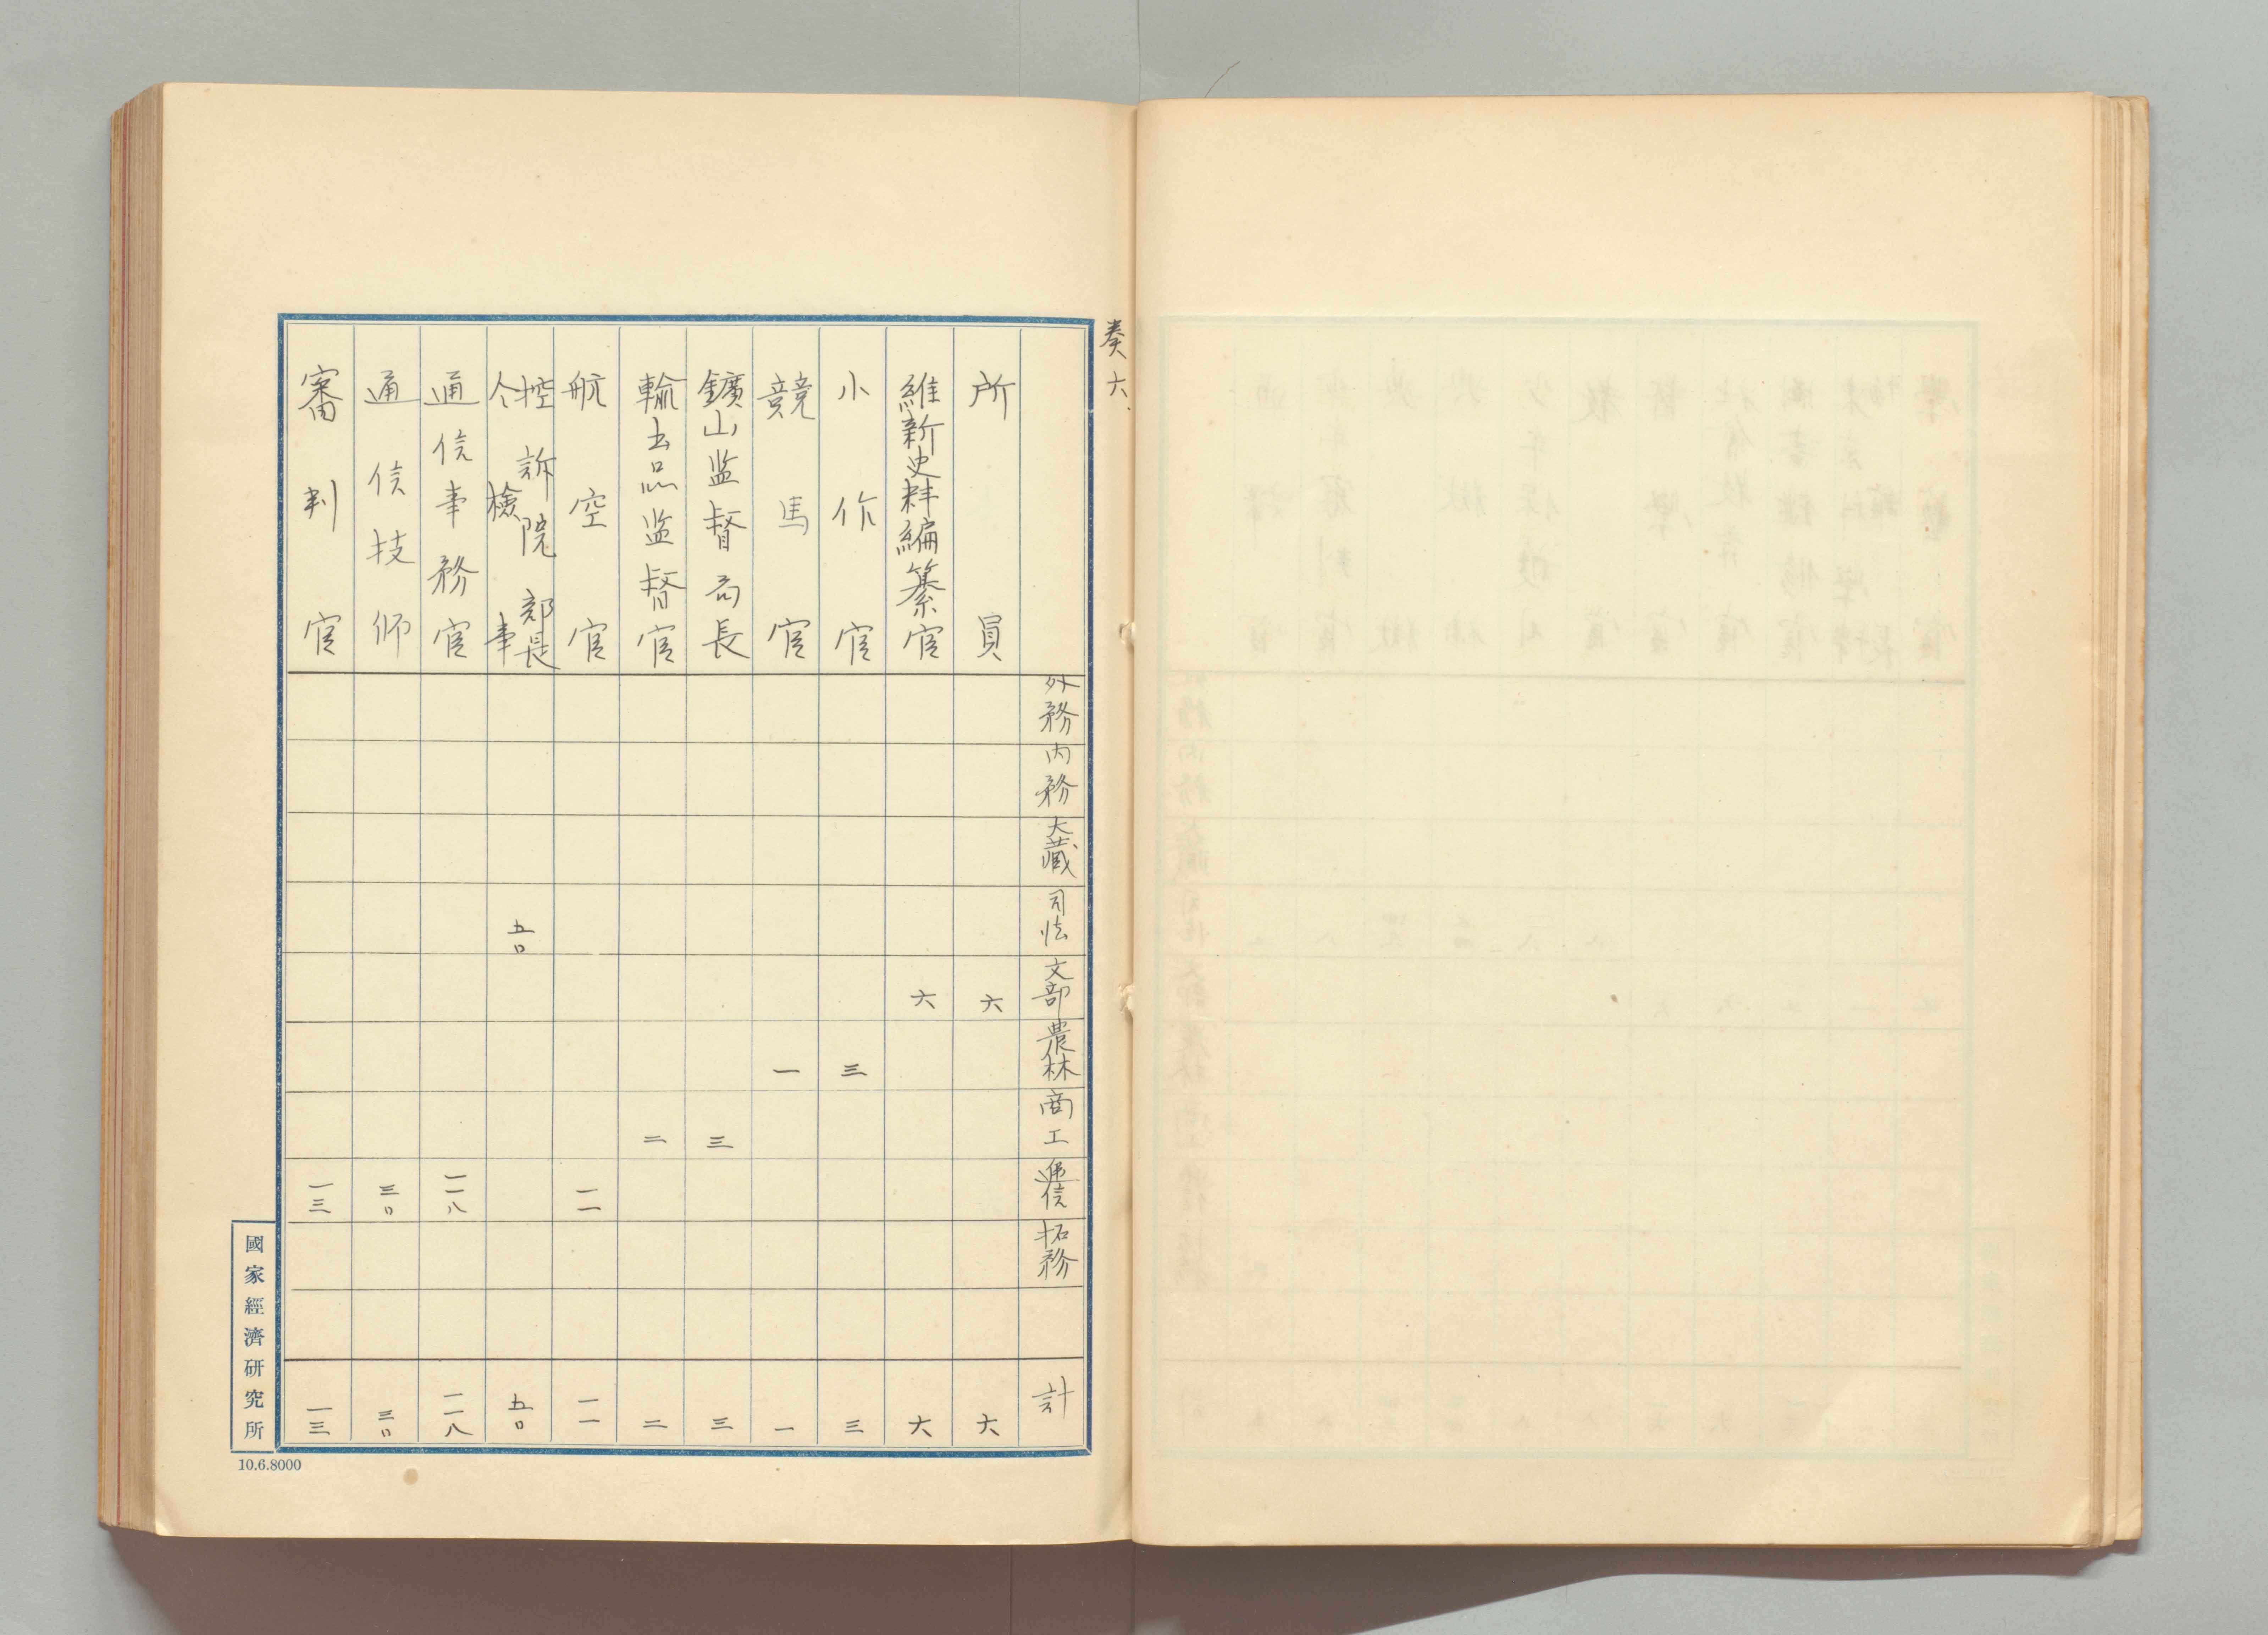 奏六.
外務 内務 大藏 司法 文部 農林 商工 遞信 拓務 計
所員 六 六
維新史料編纂官 六 六
小作官 三 三
競馬官 一 一
鑛山监督局長 三 三
輸出品监督官 二 二
航空官 一一 一一
控訴院部長
仝檢事 五〇 五〇
通信事務官 一一八 一一八
通信技師 三〇 三〇
審判官 一三 一三
國家經濟研究所
10.6.8000